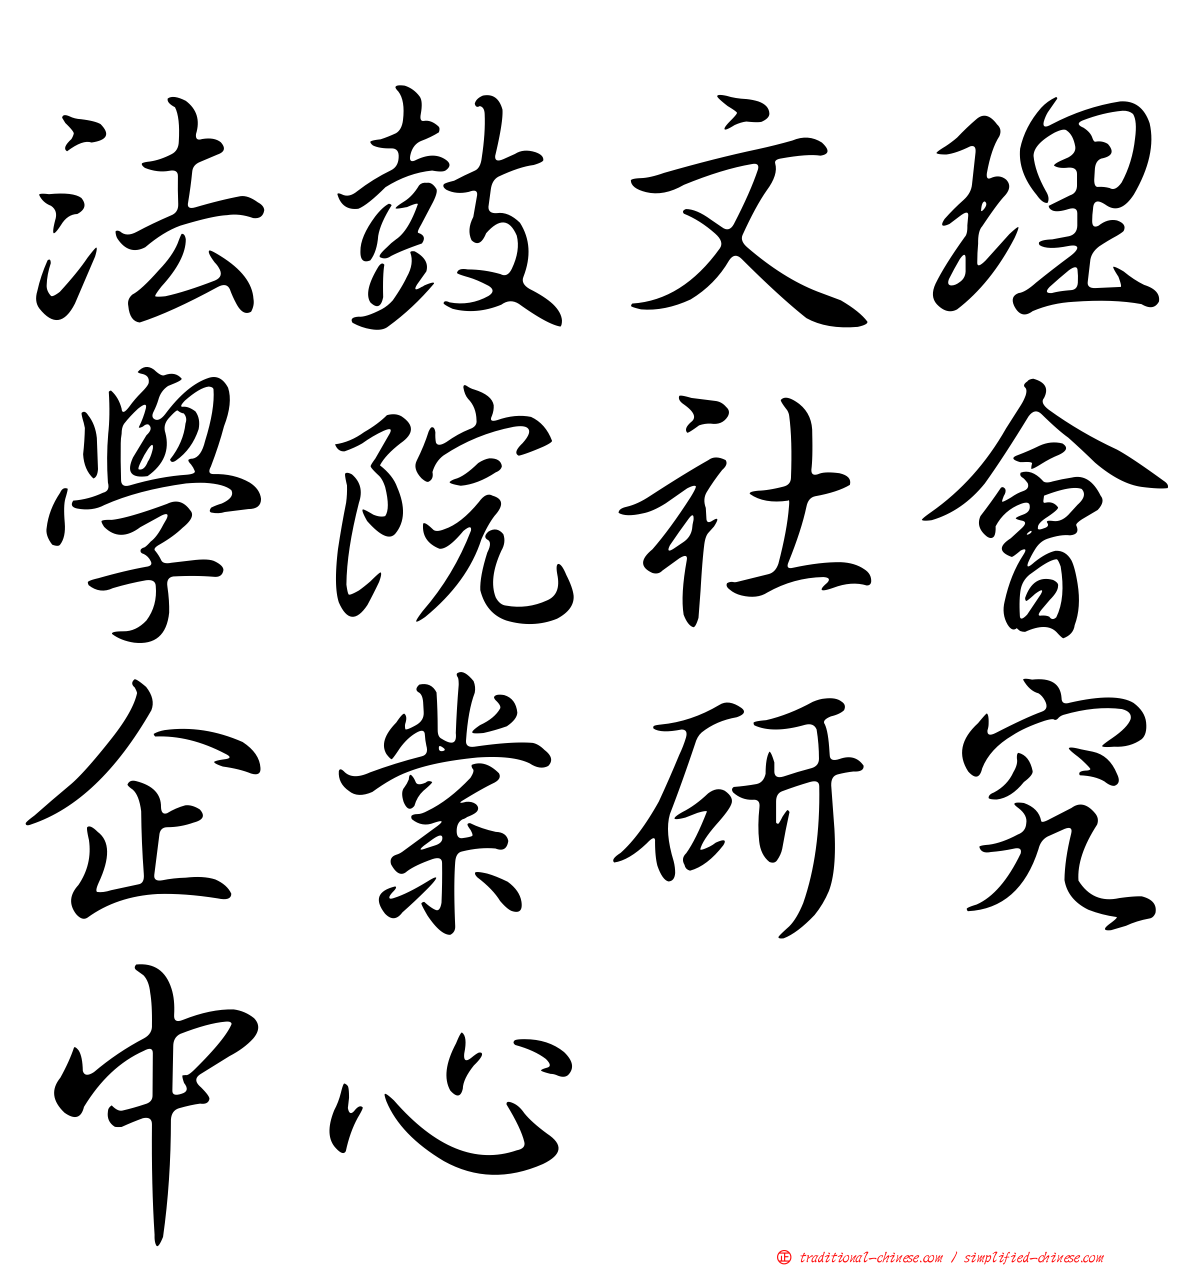 法鼓文理
學院社會
企業研究
中心
㊣ traditional-chinese.com / simplified-chinese.com